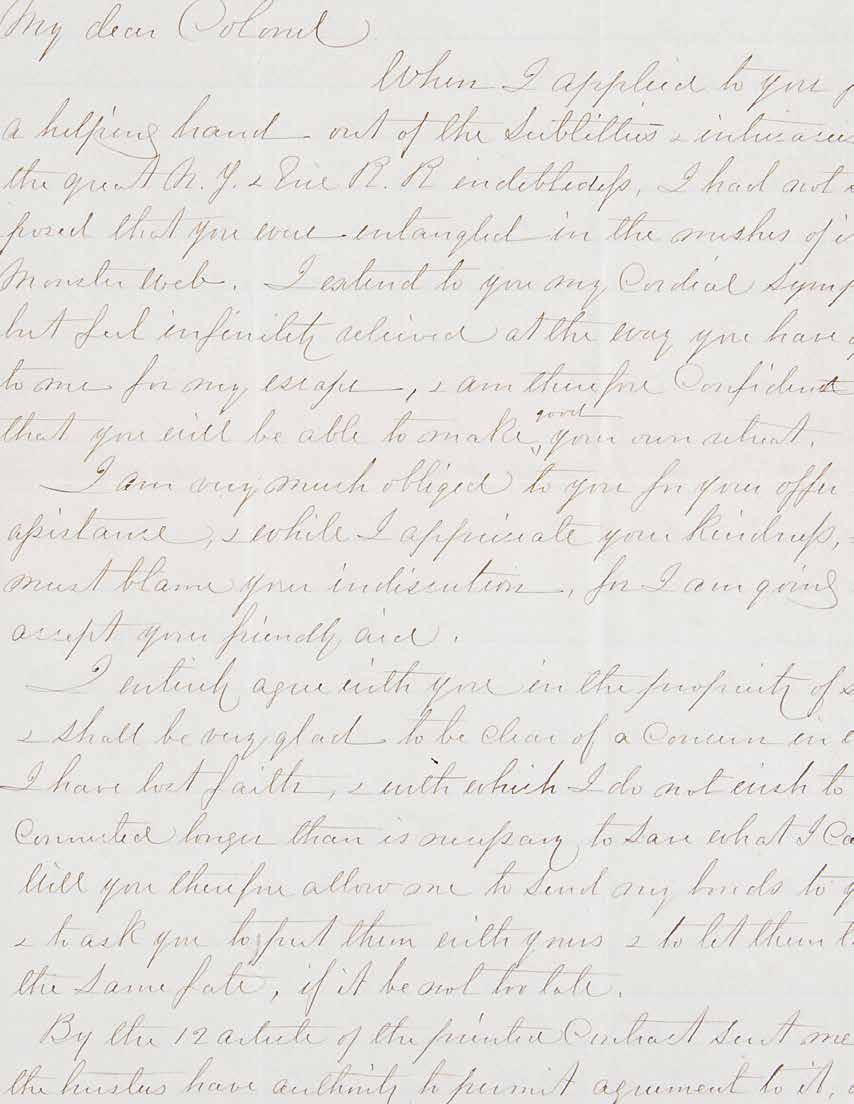 My dear Colonel
When I applied to you
a helping hand out of the subtilties & intricacies
the great N. Y. & Erie R. R indebtedness, I had not
posed that you were entangled in the meshes of
Monster web. I extend to you my Cordial Symp
but feel infinitely relieved at the way you have
to me for my escape, & am therefore Confident
that you will be able to make good your own retreat.
I am very much obliged to you for your offer
assistance, & while I appreciate your kindness,
must blame your indiscretion, for I am going
accept your friendly aid.
I entirely agree with you in the propriety of
& shall be very glad to be clear of a Concern in
I have lost faith, & with which I do not wish to
Connected longer than is necessary to save what I Ca
Will you therefore allow me to send my bonds to y
& to ask you to put them with yours & to let them
the same fate, if it be not too late.
By the 12 article of the printed Contract sent me
the trustees have authority to permit agreement to it,